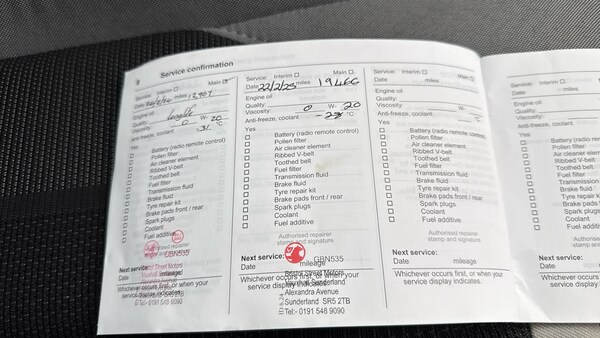 8
Service confirmation
Service: Interim ☐ Main
Date miles
Engine oil
Quality: longlife
Viscosity: 0 W- 20
Anti-freeze, coolant -31 °C
Yes
☐ Battery (radio remote control)
☐ Pollen filter
☐ Air cleaner element
☐ Ribbed V-belt
☐ Toothed belt
☐ Fuel filter
☐ Transmission fluid
☐ Brake fluid
☐ Tyre repair kit
☐ Brake pads front / rear
☐ Spark plugs
☐ Coolant
☐ Fuel additive
GBN535
Next service:
Date mileage
Whichever occurs first, or when your
service display indicates.
Tel:- 0191 548 9090
Service: Interim ☐ Main ☐
Date 22/2/25 miles 19466
Engine oil
Quality:
Viscosity: 0 W- 20
Anti-freeze, coolant °C
Yes
☐ Battery (radio remote control)
☐ Pollen filter
☐ Air cleaner element
☐ Ribbed V-belt
☐ Toothed belt
☐ Fuel filter
☐ Transmission fluid
☐ Brake fluid
☐ Tyre repair kit
☐ Brake pads front / rear
☐ Spark plugs
☐ Coolant
☐ Fuel additive
Authorised repairer
stamp and signature
GBN535
Next service:
Date mileage
Bristol Street Motors
Whichever occurs first, or when your
Vauxhall Sunderland
service display indicates.
Alexandra Avenue
Sunderland SR5 2TB
Tel:- 0191 548 9090
Service: Interim ☐ Main ☐
Date miles
Engine oil
Quality:
Viscosity: W-
Anti-freeze, coolant °C
Yes
☐ Battery (radio remote control)
☐ Pollen filter
☐ Air cleaner element
☐ Ribbed V-belt
☐ Toothed belt
☐ Fuel filter
☐ Transmission fluid
☐ Brake fluid
☐ Tyre repair kit
☐ Brake pads front / rear
☐ Spark plugs
☐ Coolant
☐ Fuel additive
Authorised repairer
stamp and signature
Next service:
Date mileage
Whichever occurs first, or when your
service display indicates.
Service: Interim ☐
Date miles
Engine oil
Quality:
Viscosity:
Anti-freeze, coolant
Yes
☐ Battery (radio
☐ Pollen filter
☐ Air cleaner
☐ Ribbed V-belt
☐ Toothed belt
☐ Fuel filter
☐ Transmission
☐ Brake fluid
☐ Tyre repair kit
☐ Brake pads
☐ Spark plugs
☐ Coolant
☐ Fuel additive
Authorised
stamp and
Next service:
Date
Whichever occurs
service display